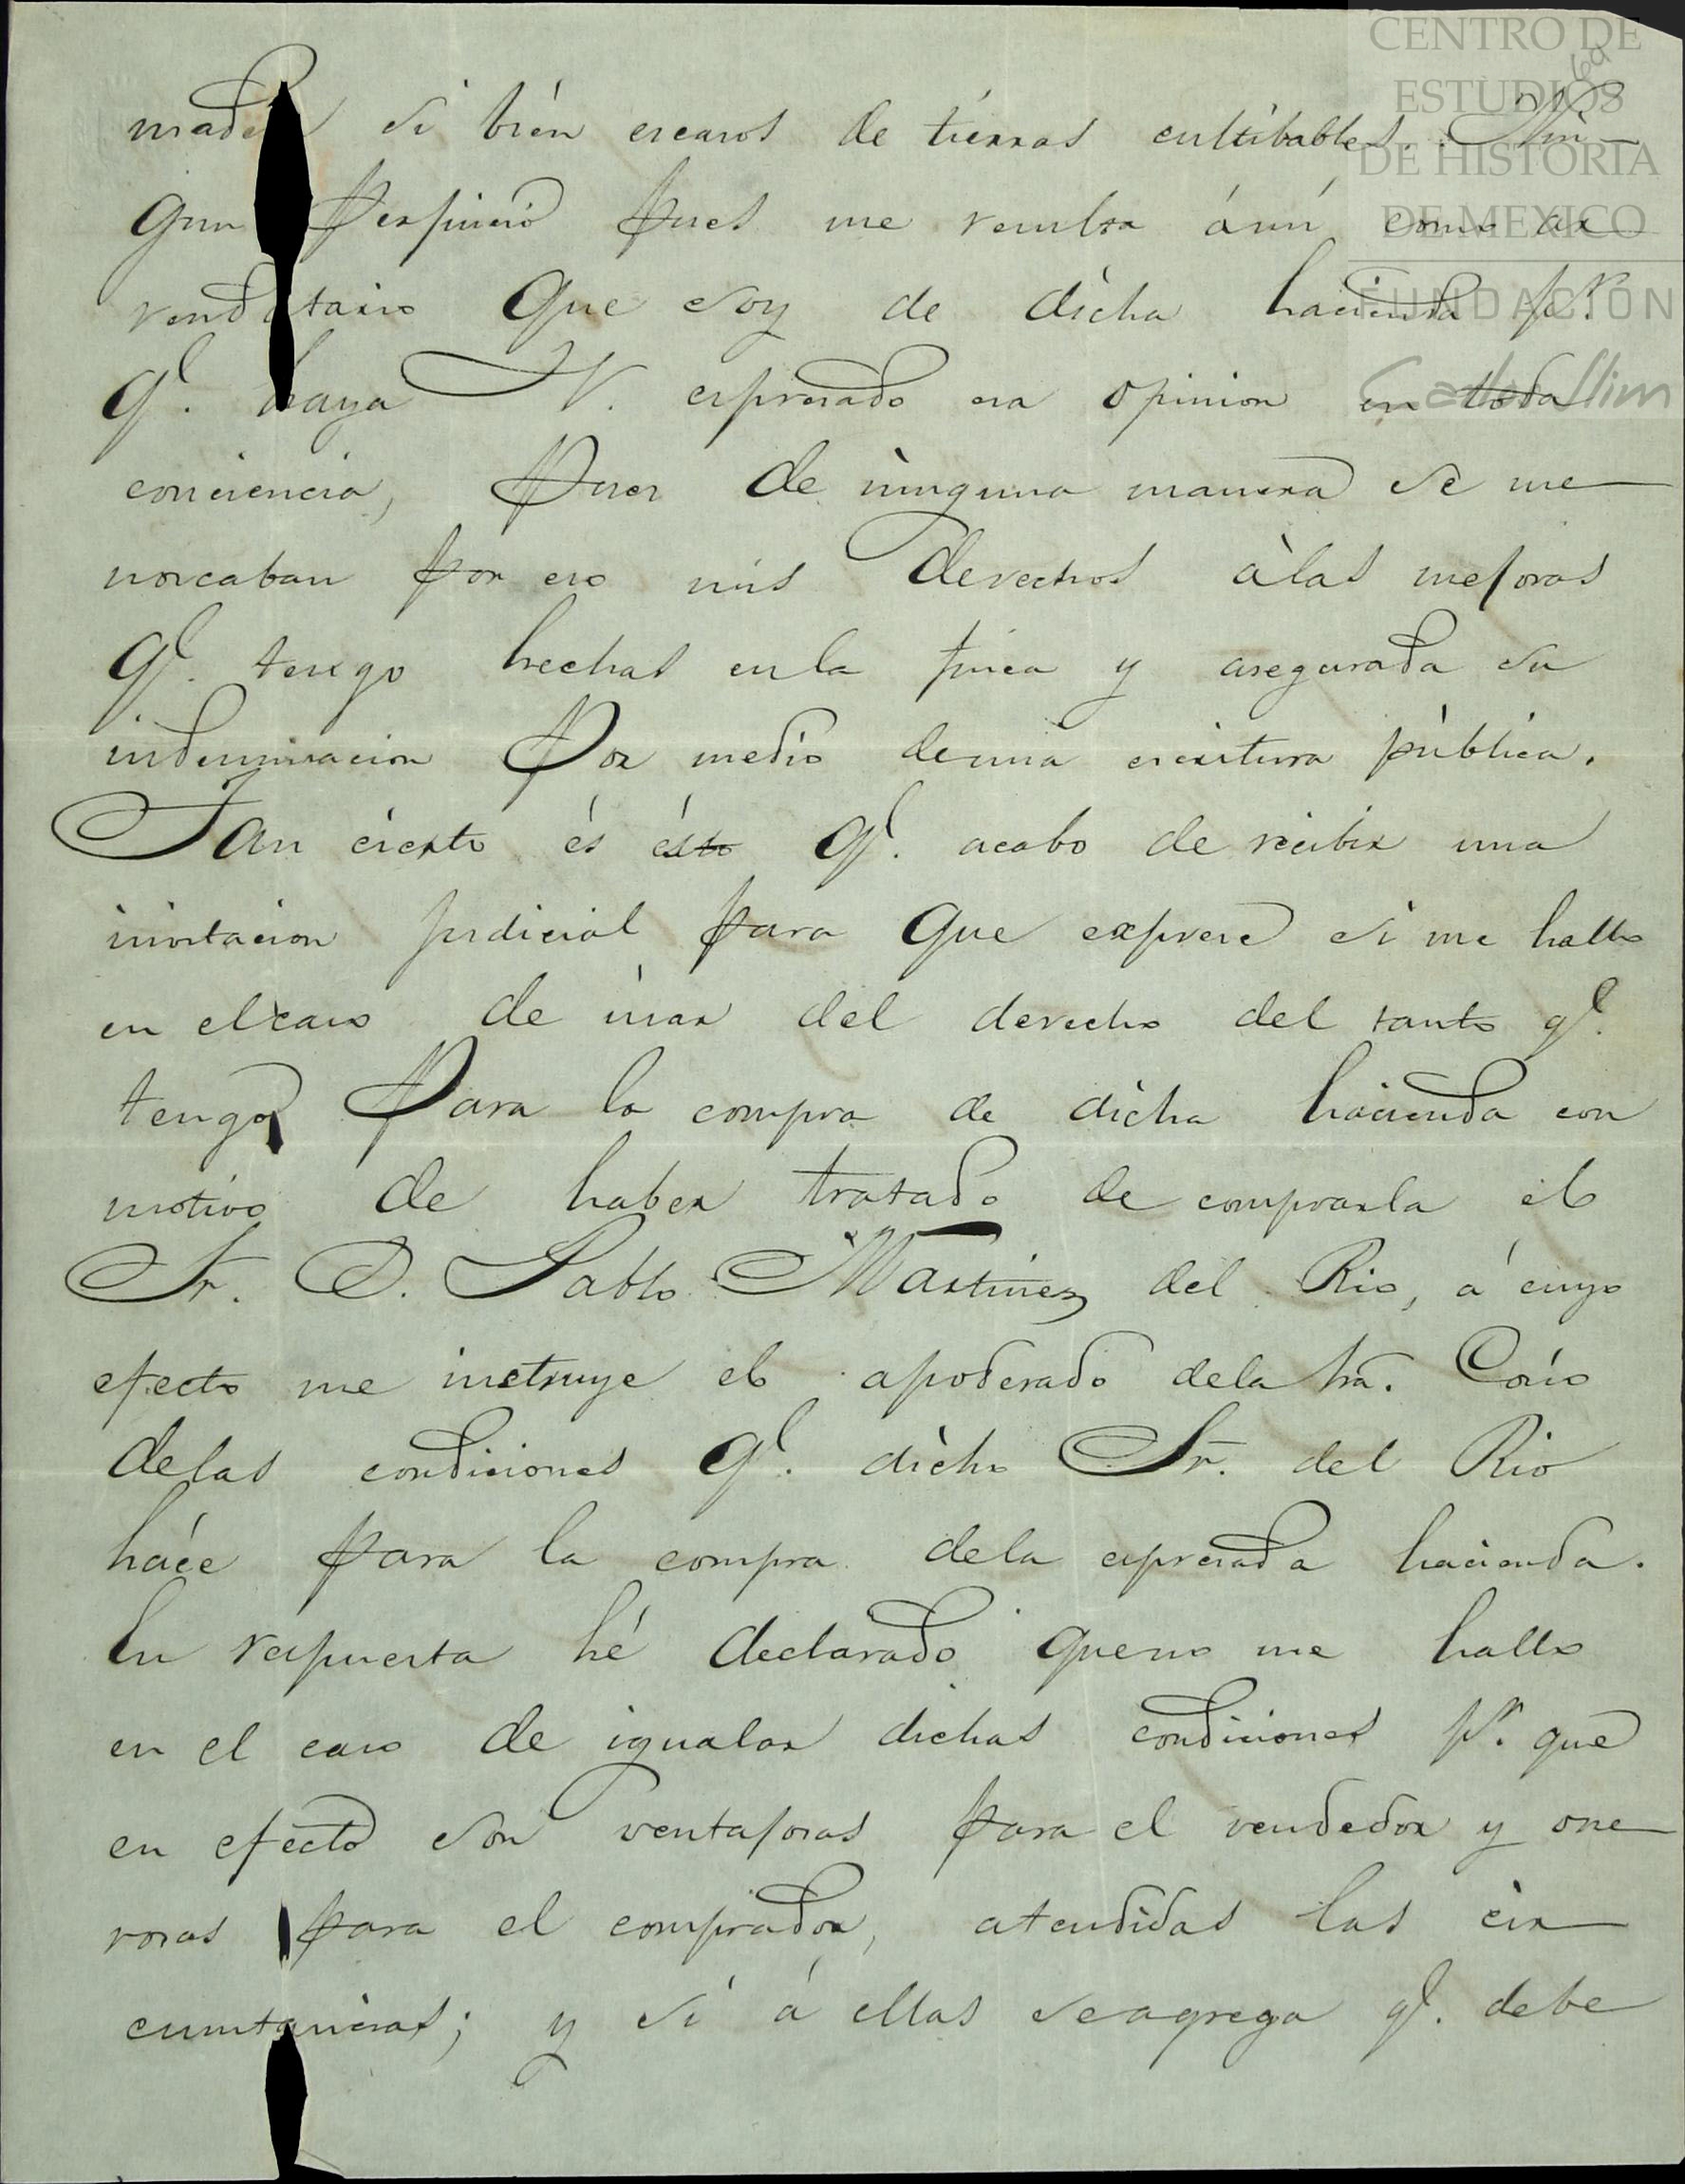 CENTRO DE
ESTUDIOS
DE HISTORIA
DE MEXICO
FUNDACIÓN
Carlos Slim
69
si bién escasos de tierras cultibables. Nin-
gun perjuicio pues me resulta áun como ar
rendatario que soy de dicha hacienda pr.
ql. haya V. espresado esa opinion en toda
conciencia, pues de ninguna manera se me
noscaban por eso mis derechos àlas mejoras
ql. tengo hechas enla finca y asegurada su
indemnisacion por medio deuna escritura pública.
Tan cierto és ésto ql. acabo de recibir una
invitacion judicial para que exprese si me hallo
en elcaso de usar del derecho del tanto ql.
tengo para la compra de dicha hacienda con
motivo de haber tratado de comprarla el
Sr. D. Pablo Martinez del Rio, á cuyo
efecto me instruye el apoderado dela tra. Cosío
delas condiciones ql. dicho Sr. del Rio
háce para la compra dela espresada hacienda.
En respuesta hé declarado queno me hallo
en el caso de igualar dichas condiciones pr. que
en efecto son ventajosas para el vendedor y one
rosas para el comprador, atendidas las cir
cunstancias; y si á ellas seagrega ql. debe